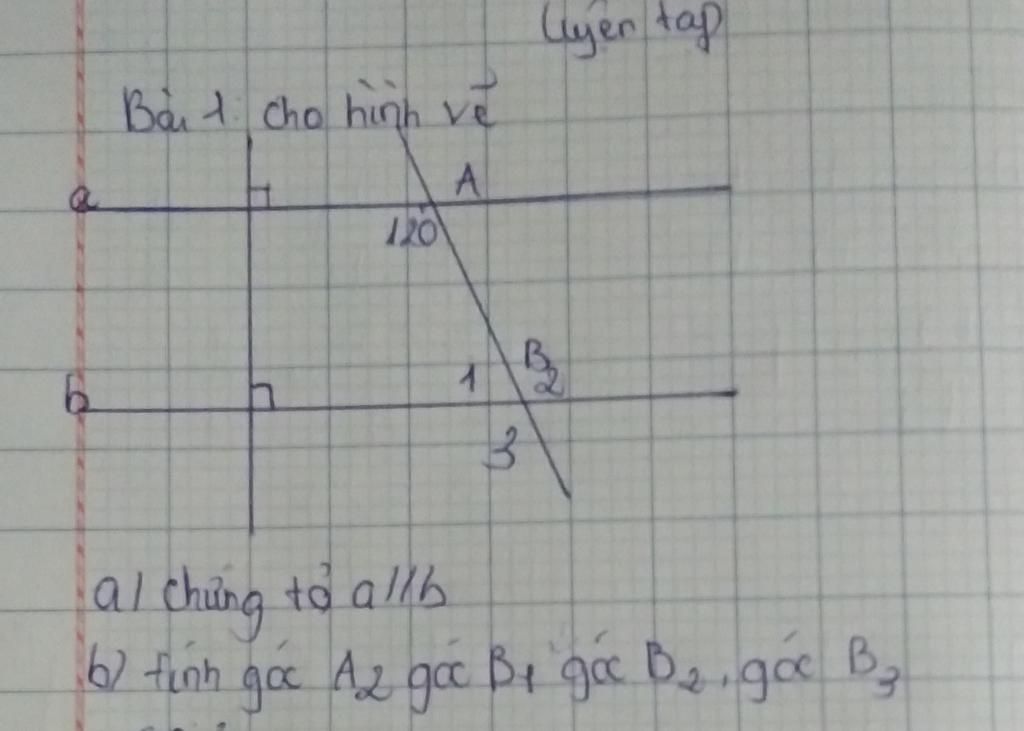 luyện tập
Bài 1: cho hình vẽ
a
A
120
B
1
2
b
3
a) chứng tỏ a//b
b) tính góc A2 góc B1 góc B2, góc B3